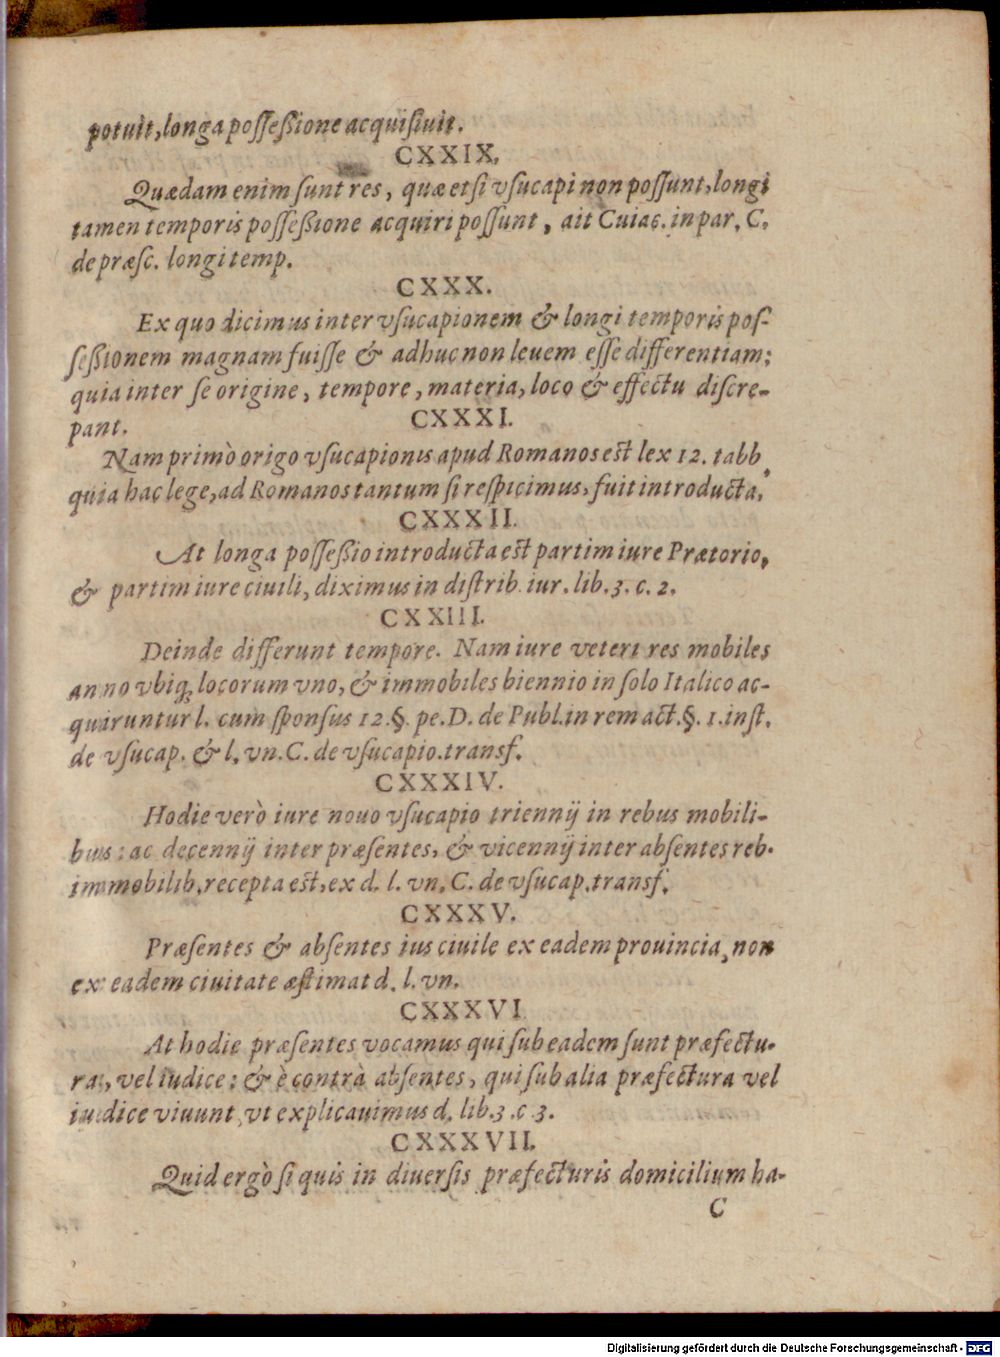 potuit, longa poſſeßione acquiſiuit.
CXXIX.
Quædam enim ſunt res, quæ etſi vſucapi non poſſunt, longi
tamen temporis poſſeßione acquiri poſſunt, ait Cuiac. in par. C.
de præſc. longi temp.
CXXX.
Ex quo dicimus inter vſucapionem & longi temporis poſ-
ſeßionem magnam fuiſſe & adhuc non leuem eſſe differentiam:
quia inter ſe origine, tempore, materia, loco & effectu diſcre-
pant.
CXXXI.
Nam primò origo vſucapionis apud Romanos eſt lex 12. tabb.
quia hac lege, ad Romanos tantum ſi reſpicimus, fuit introducta.
CXXXII.
At longa poſſeßio introducta eſt partim iure Prætorio,
& partim iure ciuili, diximus in diſtrib. iur. lib. 3. c. 2.
CXXIII.
Deinde differunt tempore. Nam iure veteri res mobiles
anno vbiq; locorum vno, & immobiles biennio in ſolo Italico ac-
quiruntur l. cum ſponſus 12. §. pe. D. de Publ. in rem act. §. 1. inſt.
de vſucap. & l. vn. C. de vſucapio. transf.
CXXXIV.
Hodie verò iure nouo vſucapio triennij in rebus mobili-
bus: ac decennij inter præſentes, & vicennij inter abſentes reb.
immobilib. recepta eſt, ex d. l. vn. C. de vſucap. transf.
CXXXV.
Præſentes & abſentes ius ciuile ex eadem prouincia, non
ex eadem ciuitate æſtimat d. l. vn.
CXXXVI
At hodie præſentes vocamus qui ſub eadem ſunt præfectu-
ra, vel iudice: & è contrà abſentes, qui ſub alia præfectura vel
iudice viuunt, vt explicauimus d. lib. 3. c 3.
CXXXVII.
Quid ergò ſi quis in diuerſis præfecturis domicilium ha-
C
Digitalisierung gefördert durch die Deutsche Forschungsgemeinschaft - DFG